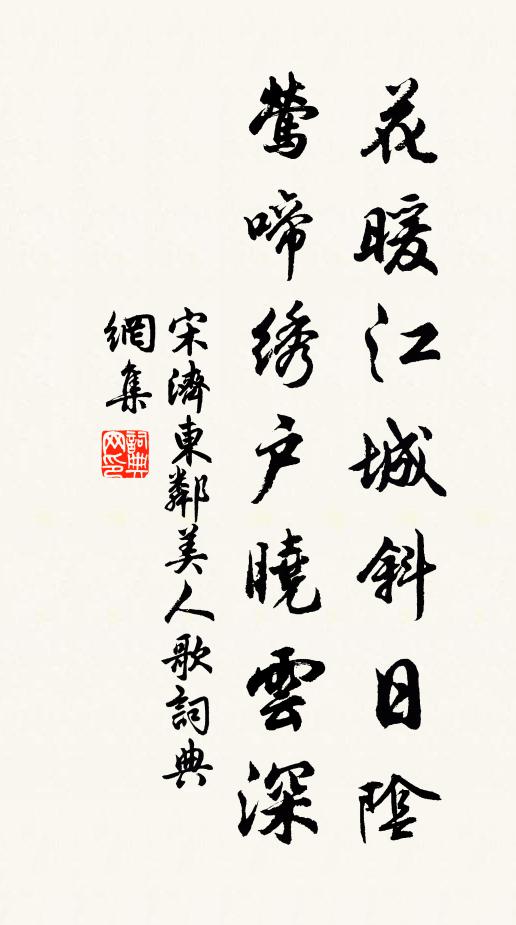 花暖江城斜日陰
鶯啼綉户曉雲深
宋濟東鄰美人歌詞典
網集
詞典网印